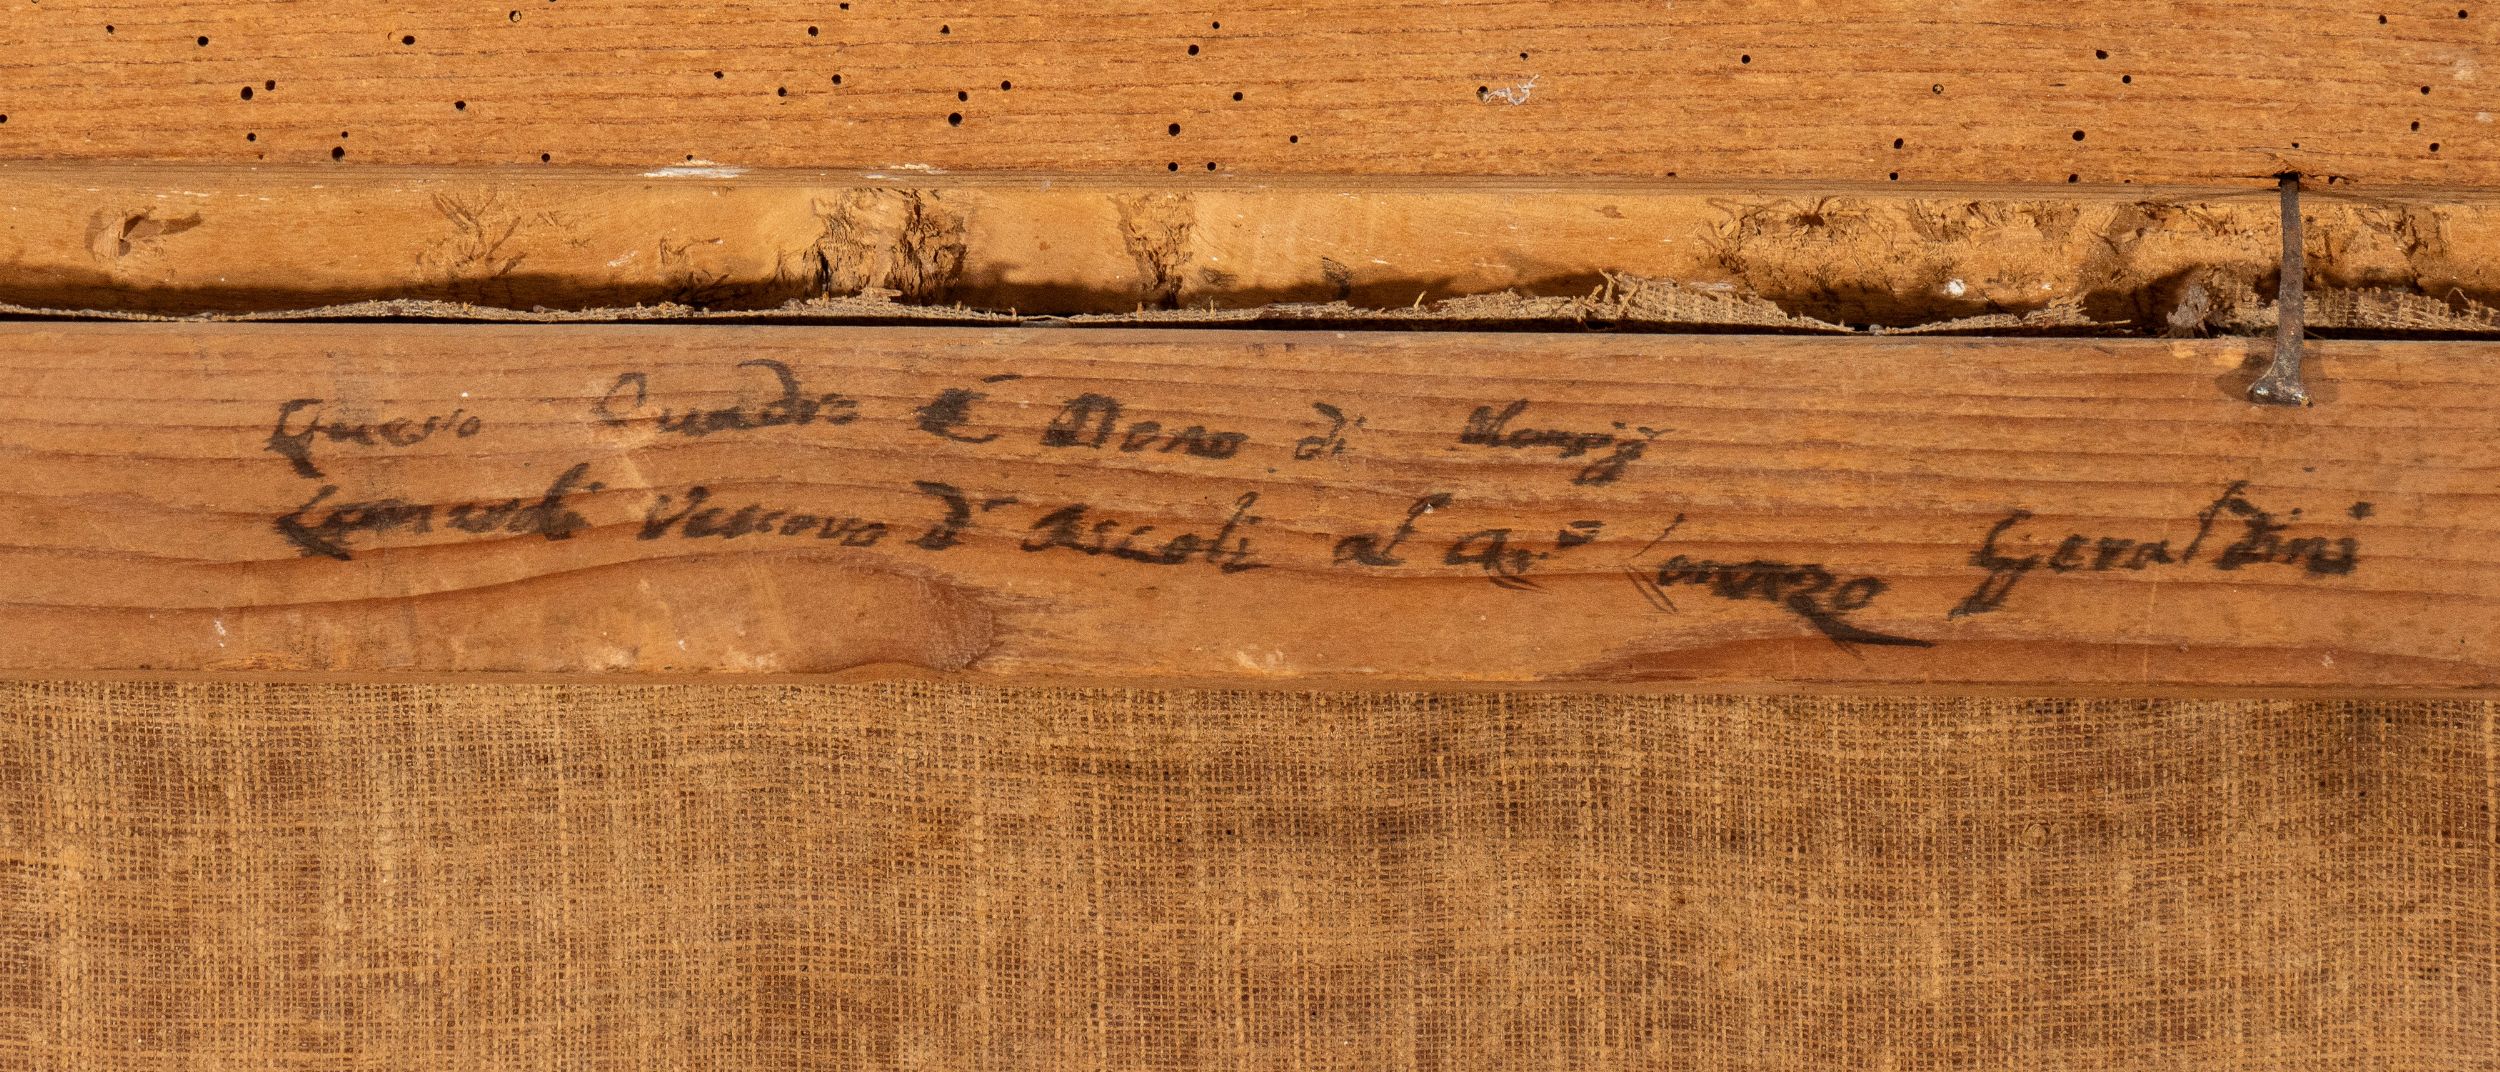 Questo Quadro È Dono di Monsig
Leonardi Vescovo d' Ascoli al Lorenzo Geraldini